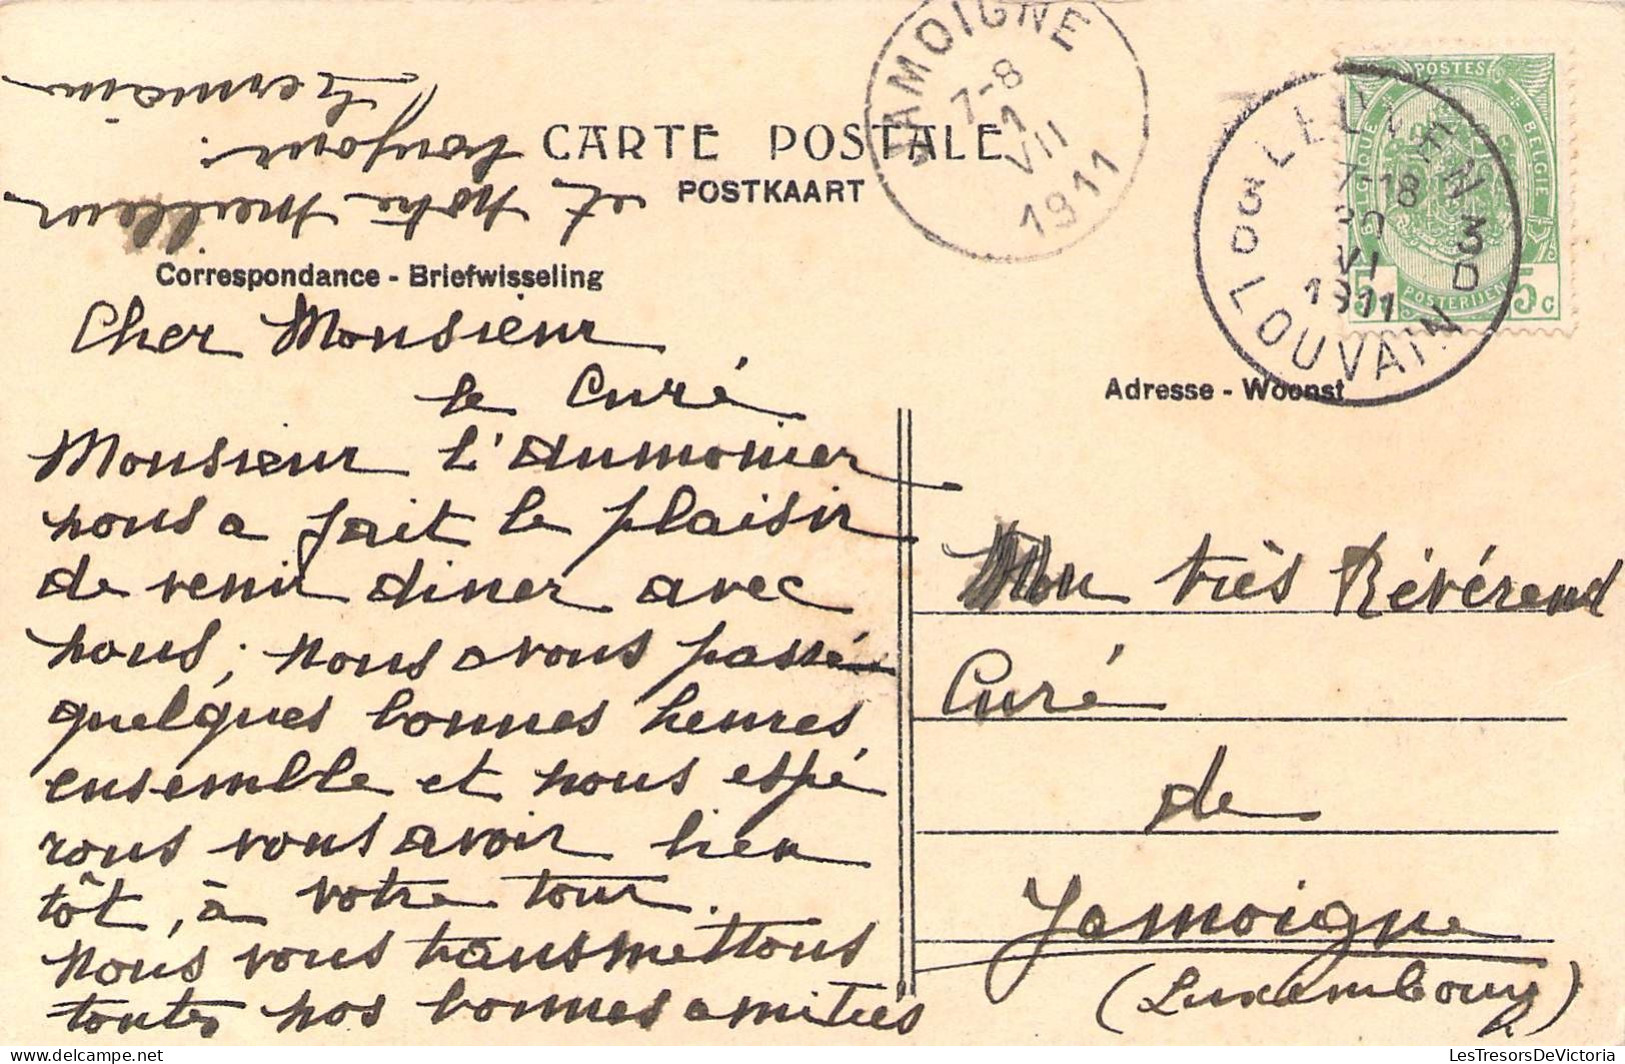 JAMOIGNE
7-8
1
VII
1911
CARTE POSTALE
POSTKAART
POSTES
BELGIQUE
BELGIE
POSTERIJEN
5
5c
LEUVEN
7-18
30
VI
1911
3
D
LOUVAIN
3
D
Correspondance - Briefwisseling
Adresse - Woonst
Cher Monsieur
le Curé
Monsieur l'aumonier
nous a fait le plaisir
de venir diner avec
nous; nous avons passé
quelques bonnes heures
ensemble et nous espé
rons vous avoir bien
tôt, à votre tour.
Nous vous transmettons
toutes nos bonnes amitiés
et notre meilleur
bonjour.
Germain
Mon très Révérend
Curé
de
Jamoigne
(Luxembourg)
LesTresorsDeVictoria.com